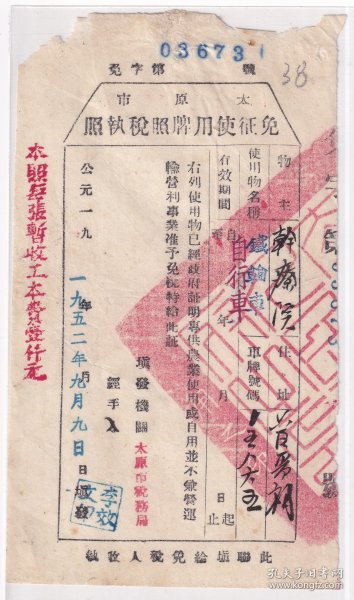 036731
號 第 字免
38
市 原 太
照執稅照牌用使征免
物主 幹療院 住址
使用物名稱 鐵輪車 自行車 車牌號碼
有效期間 自 年 月 日起 至 止
右列使用物已經政府証明專供農業使用或自用並不兼營運
輸營利事業准予免稅特給此証
填發機關 太原市稅務局
經手人
公元一九 年 月 日填發
一九五二年九月九
李效文印
此聯填給免稅人收執
本照每張暫收工本費壹仟元
孔夫子旧书网